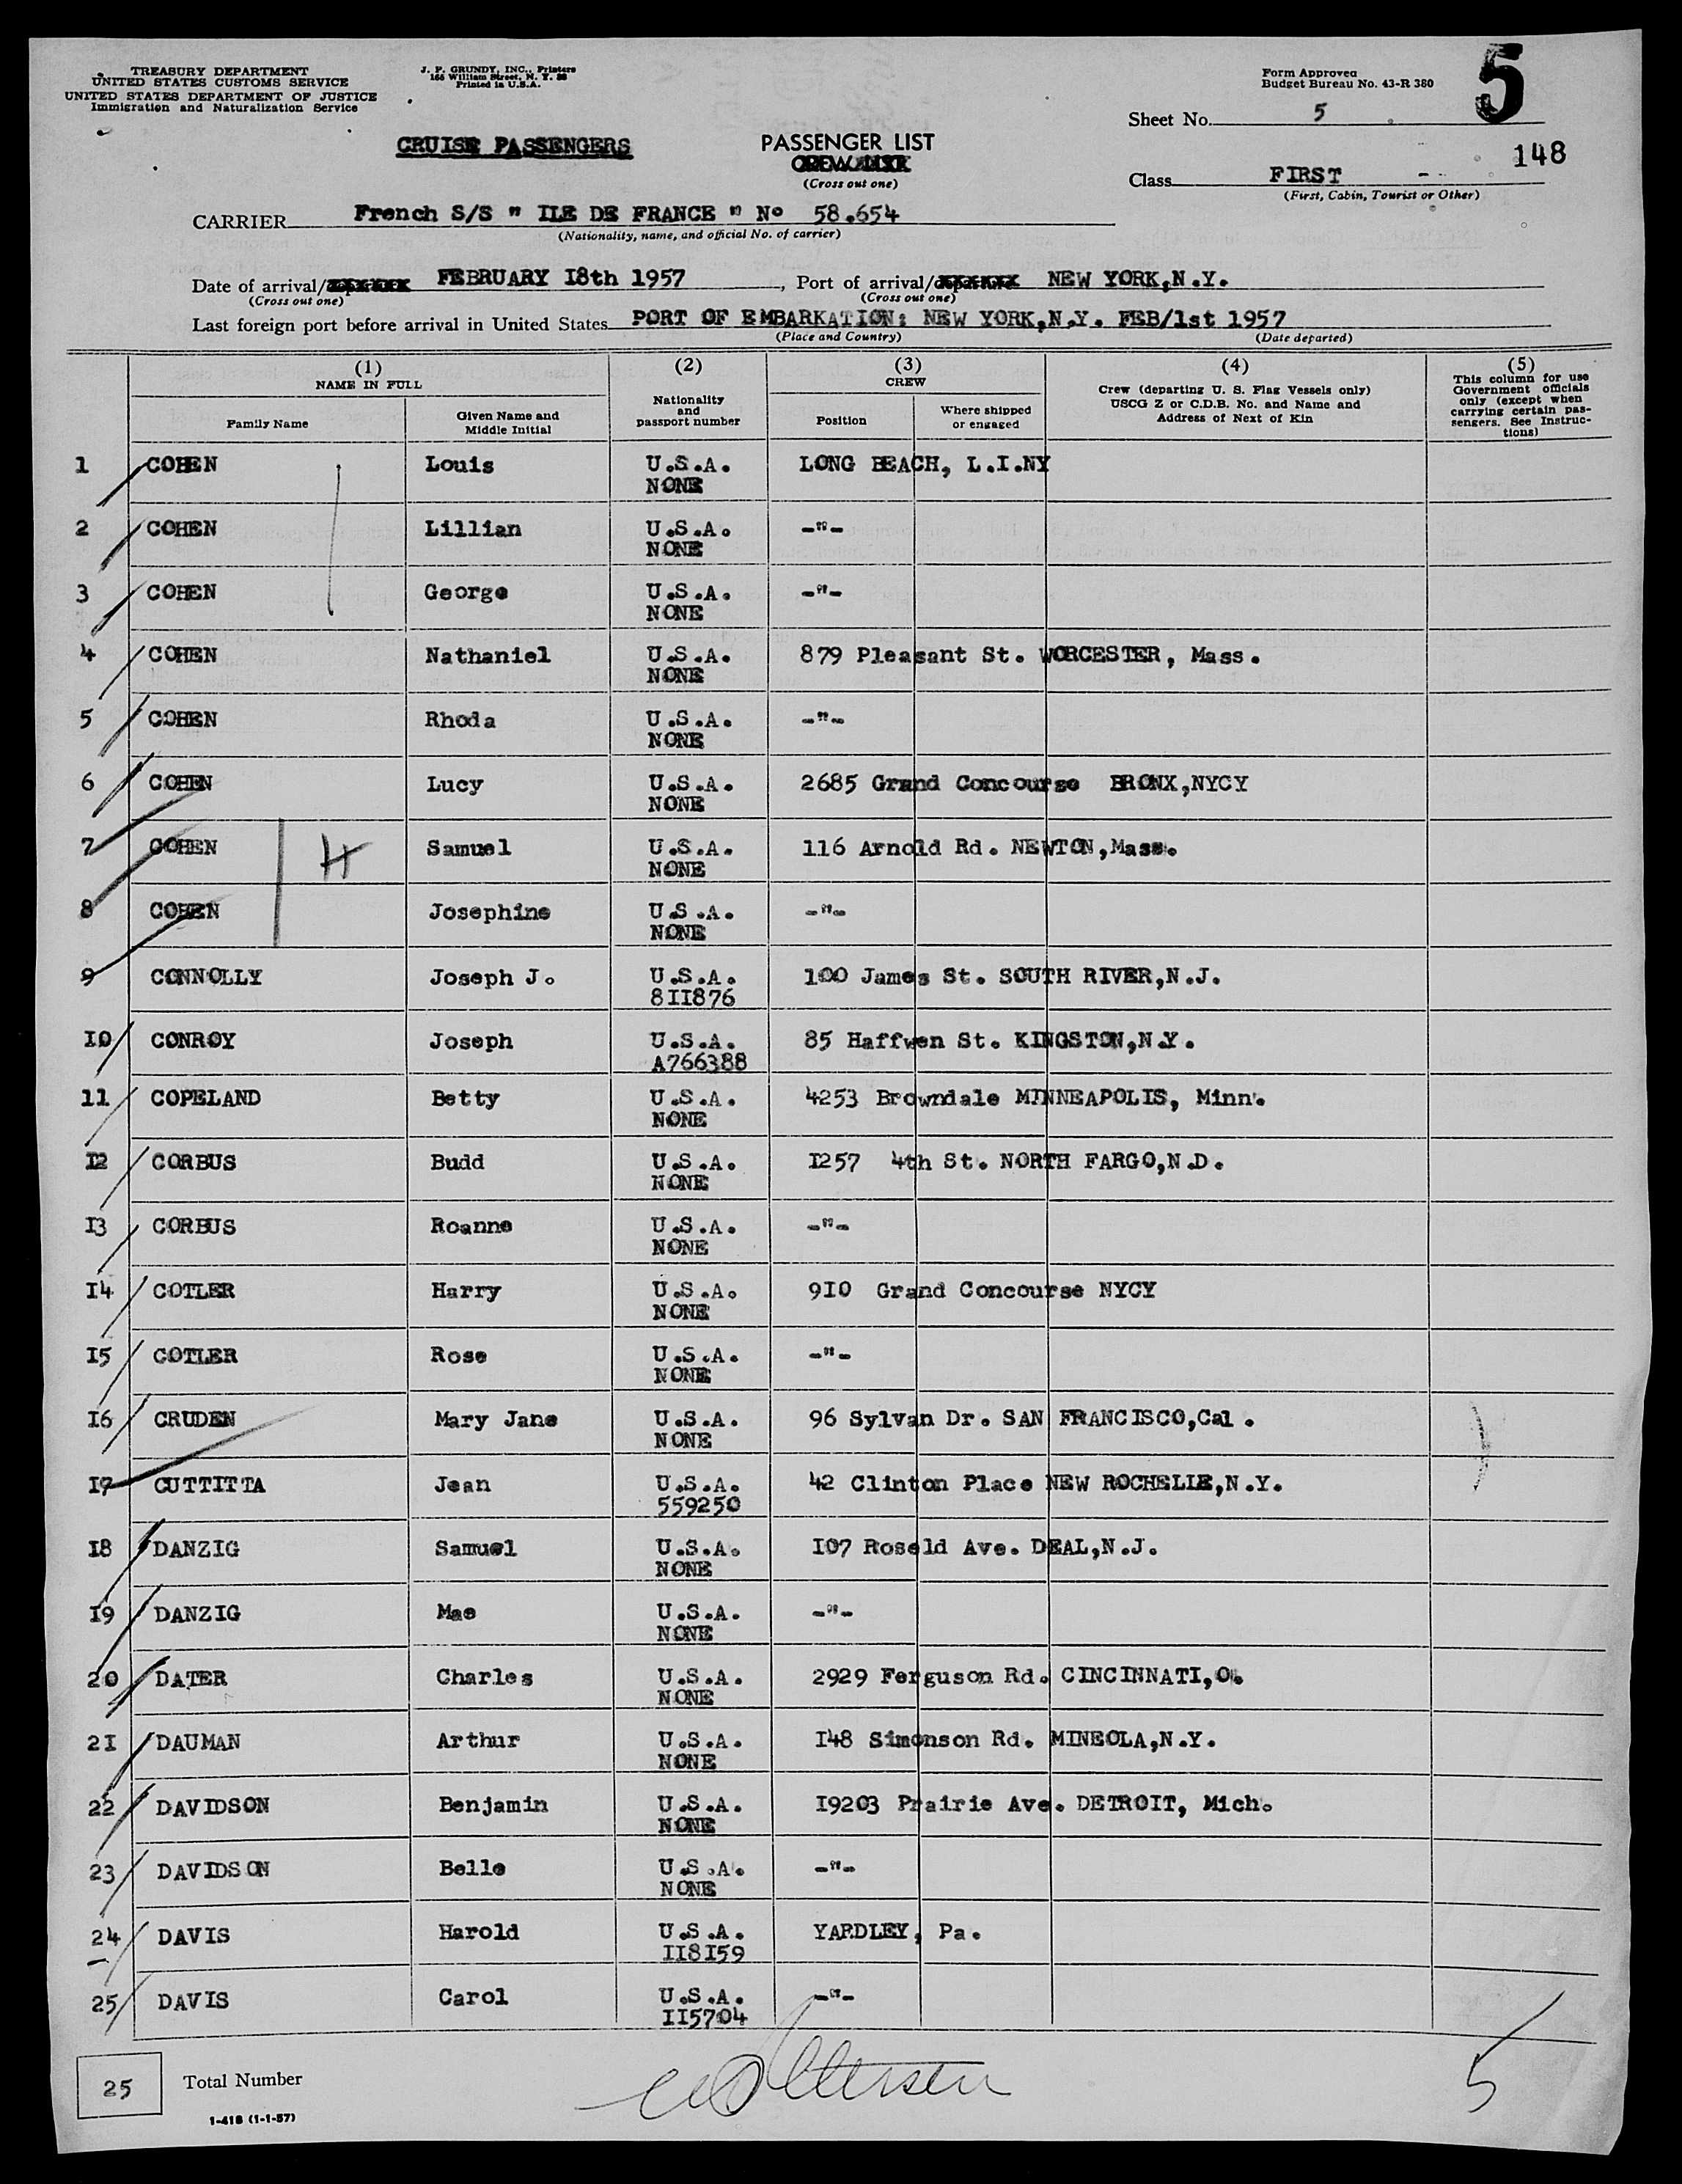 TREASURY DEPARTMENT
UNITED STATES CUSTOMS SERVICE
UNITED STATES DEPARTMENT OF JUSTICE
Immigration and Naturalization Service
J. F. GRUNDY, INC., Printers
166 William Street, N. Y. 38
Printed in U.S.A.
Form Approved
Budget Bureau No. 43-R 380
5
Sheet No. 5
148
CRUISE PASSENGERS
PASSENGER LIST
CREW LIST
(Cross out one)
Class FIRST
(First, Cabin, Tourist or Other)
CARRIER French S/S " ILE DE FRANCE " No 58.654
(Nationality, name, and official No. of carrier)
Date of arrival/ FEBRUARY I8th 1957, Port of arrival/ NEW YORK,N.Y.
(Cross out one) (Cross out one)
Last foreign port before arrival in United States PORT OF EMBARKATION: NEW YORK,N.Y. FEB/1st 1957
(Place and Country) (Date departed)
(1) (2) (3) (4) (5)
NAME IN FULL
Family Name
Given Name and
Middle Initial
Nationality
and
passport number
CREW
Position
Where shipped
or engaged
Crew (departing U. S. Flag Vessels only)
USCG Z or C.D.B. No. and Name and
Address of Next of Kin
This column for use
Government officials
only (except when
carrying certain pas-
sengers. See Instruc-
tions)
1 COHEN Louis U.S.A. LONG BEACH, L.I.NY
NONE
2 COHEN Lillian U.S.A. -"-
NONE
3 COHEN George U.S.A. -"-
NONE
4 COHEN Nathaniel U.S.A. 879 Pleasant St. WORCESTER, Mass.
NONE
5 COHEN Rhoda U.S.A. -"-
NONE
6 COHEN Lucy U.S.A. 2685 Grand Concourse BRONX,NYCY
NONE
7 COHEN H Samuel U.S.A. 116 Arnold Rd. NEWTON,Mass.
NONE
8 COHEN Josephine U.S.A. -"-
NONE
9 CONNOLLY Joseph J. U.S.A. 100 James St. SOUTH RIVER,N.J.
8II876
I0 CONROY Joseph U.S.A. 85 Haffwen St. KINGSTON,N.Y.
A766388
11 COPELAND Betty U.S.A. 4253 Browndale MINNEAPOLIS, Minn.
NONE
I2 CORBUS Budd U.S.A. I257 4th St. NORTH FARGO,N.D.
NONE
I3 CORBUS Roanne U.S.A. -"-
NONE
I4 COTLER Harry U.S.A. 9I0 Grand Concourse NYCY
NONE
I5 COTLER Rose U.S.A. -"-
NONE
I6 CRUDEN Mary Jane U.S.A. 96 Sylvan Dr. SAN FRANCISCO,Cal.
NONE
I7 CUTTITTA Jean U.S.A. 42 Clinton Place NEW ROCHELLE,N.Y.
559250
I8 DANZIG Samuel U.S.A. I07 Roseld Ave. DEAL,N.J.
NONE
I9 DANZIG Mae U.S.A. -"-
NONE
20 DATER Charles U.S.A. 2929 Ferguson Rd. CINCINNATI,O.
NONE
2I DAUMAN Arthur U.S.A. I48 Simonson Rd. MINEOLA,N.Y.
NONE
22 DAVIDSON Benjamin U.S.A. I9203 Prairie Ave. DETROIT, Mich.
NONE
23 DAVIDSON Belle U.S.A. -"-
NONE
24 DAVIS Harold U.S.A. YARDLEY, Pa.
II8I59
25 DAVIS Carol U.S.A. -"-
II5704
25 Total Number
5
1-418 (1-1-57)